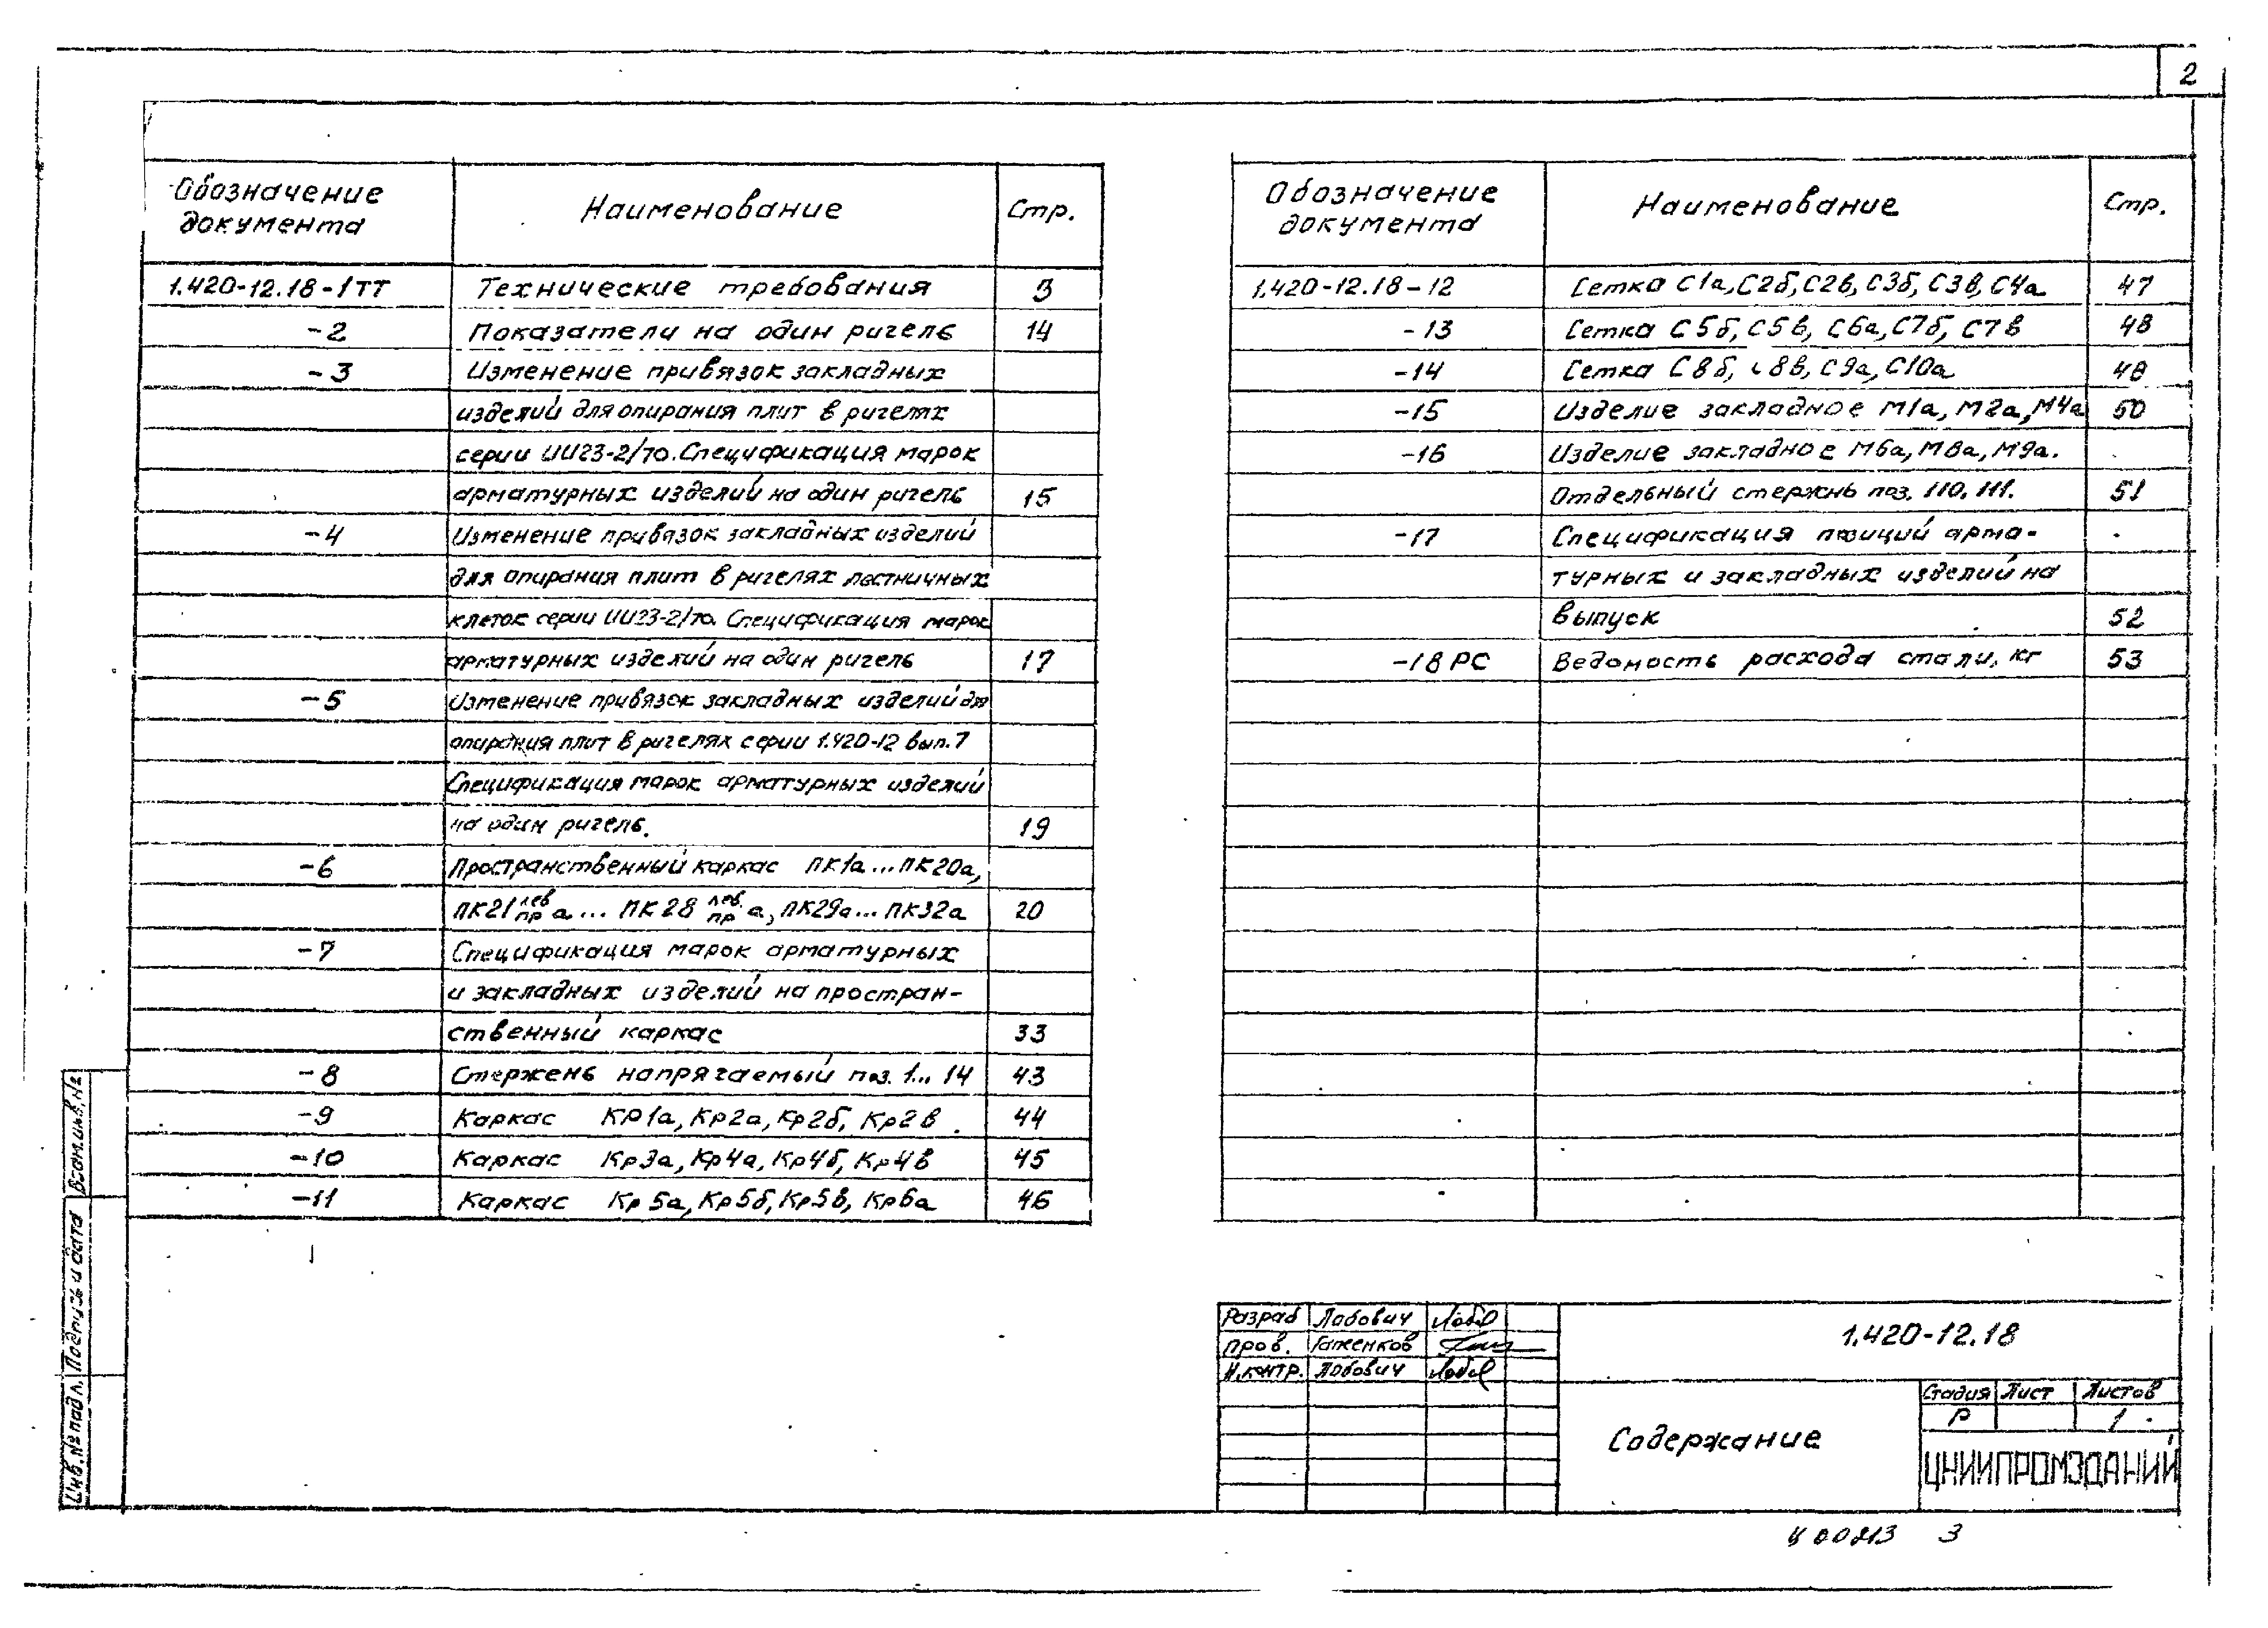 2
Обозначение документа Наименование Стр.
1.420-12.18-1ТТ Технические требования 3
-2 Показатели на один ригель 14
-3 Изменение привязок закладных
изделий для опирания плит в ригелях
серии ИИ23-2/70. Спецификация марок
арматурных изделий на один ригель 15
-4 Изменение привязок закладных изделий
для опирания плит в ригелях лестничных
клеток серии ИИ23-2/70. Спецификация марок
арматурных изделий на один ригель 17
-5 Изменение привязок закладных изделий для
опирания плит в ригелях серии 1.420-12 вып.7
Спецификация марок арматурных изделий
на один ригель. 19
-6 Пространственный каркас ПК1а...ПК20а,
ПК21 лев пр а... ПК28 лев. пр а, ПК29а...ПК32а 20
-7 Спецификация марок арматурных
и закладных изделий на простран-
ственный каркас 33
-8 Стержень напрягаемый поз. 1... 14 43
-9 Каркас КР1а, Кр2а, Кр2б, Кр2в 44
-10 Каркас Кр3а, Кр4а, Кр4б, Кр4в 45
-11 Каркас Кр5а, Кр5б, Кр5в, Кр6а 46
Обозначение документа Наименование Стр.
1.420-12.18-12 Сетка С1а, С2б, С2в, С3б, С3в, С4а 47
-13 Сетка С5б, С5в, С6а, С7б, С7в 48
-14 Сетка С8б, С8в, С9а, С10а 49
-15 Изделие закладное М1а, М2а, М4а 50
-16 Изделие закладное М6а, М8а, М9а.
Отдельный стержнь поз. 110, 111. 51
-17 Спецификация позиций арма-
турных и закладных изделий на
выпуск 52
-18РС Ведомость расхода стали, кг 53
Разраб Лабович
Пров. Гаженков
Н.контр. Лобович
1.420-12.18
Содержание
Стадия Лист Листов
Р 1
ЦНИИПРОМЗДАНИЙ
3
Инв.№ подл. Подпись и дата Взам.инв.№